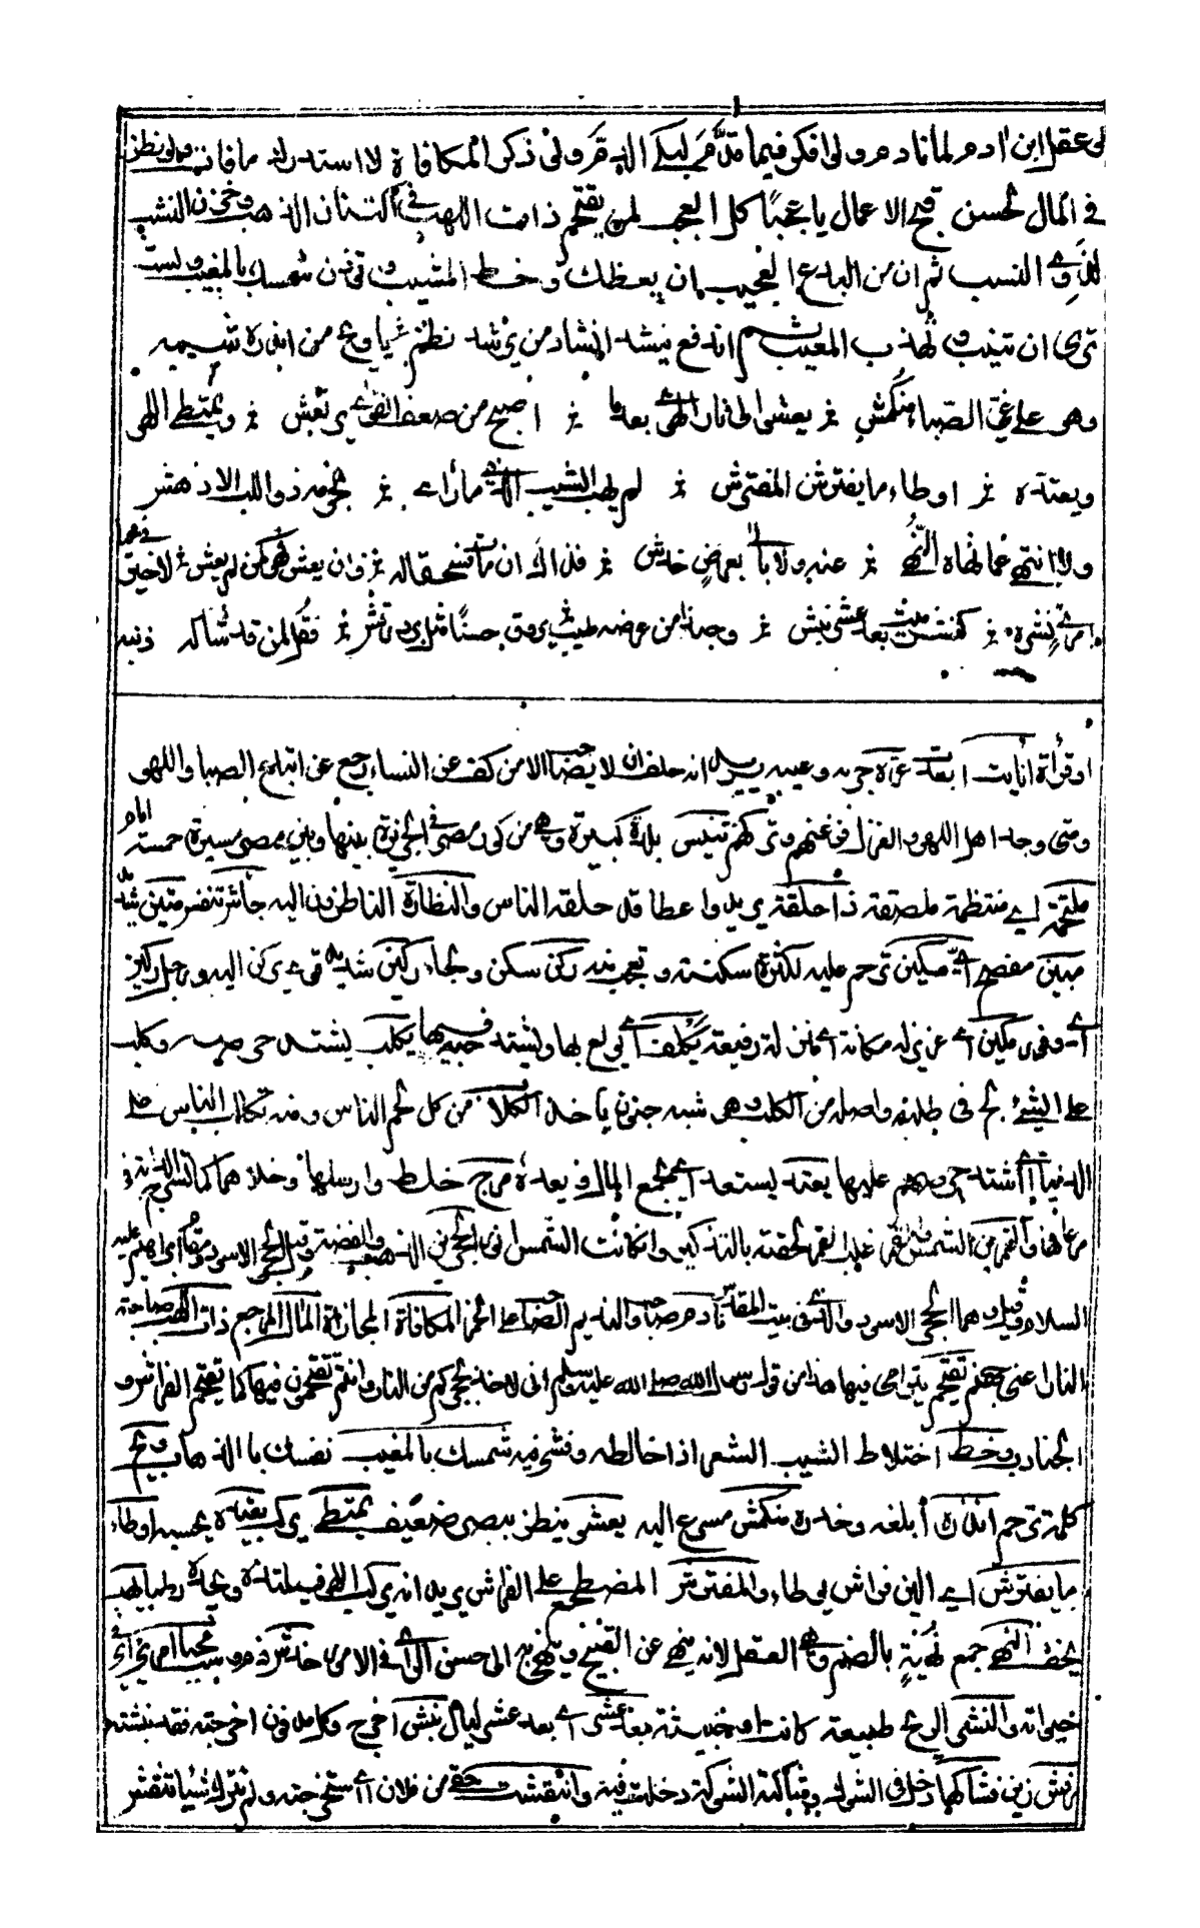 لى عقل ابن ادم لما نادم ولو افكر فيما قدم لبكى الدم ولو ذكر المكافاة لاستدرك ما فات ولو نظر
في المال لحسن قبح الاعمال يا عجبا كل العجب لمن يقتحم ذات اللهب في اكتناز الذهب وخزن النشب
لذوي النسب ثم ان من البدع العجيب ان يعظك وخط المشيب وتوذن شمسك بالمغيب ولست
ترى ان تنيب وتهذب المعيب ثم اندفع ينشد انشاد من يرشد نظم يا ويح من انذره شيبه
وهو على غي الصبا منكمش يعشو الى نار الهوى بعد ما اصبح من ضعف القوى يرتعش ويمتطي اللهو
ويعتده اوطاء ما يفترش المفترش لم يهب الشيب الذي ما رأى نجومه ذو اللب الا دهش
ولا انتهى عما نهاه النهى عنه ولا بالى بعرض خدش فذاك ان مات فسحقا له وان يعش عد كمن لم يعش لا خير في محيا
امرئ نشره كنشر ميت بعد عشر نبش وحبذا من عرضه طيب يروق حسنا مثل برد رقش فقل لمن قد شاكه ذنبه
او قرأة ايات ابعد عزة جربه وعيبه انه حلف ان لا يضا الا من كف عن النساء رجع عن اتباع الصبا واللهو
ومتى وجد اهل اللهو والغزل تنيس بلدة كبيرة وهي من كور مصر في الجزيرة بينها وبين مصر مسيرة خمسة ايام
ملتحمة اي منتظمة ملصقة ذا حلقة يريد واعظا قد حلقه الناس والنظارة الناظرون اليه متين شديد
مبين مفصح اي مسكين ترحم عليه لكثرة سكنته ركن سكن ولجاء ركين شديد قوي يركن اليه وجبل ركين
اي وقور مكين اي عزيز له مكانة اي منزلة رفيعة يكلف اي يولع بها ويشتد حبه فيها يكلب يشتد حرصه وكلب
على الشيء لج في طلبه واصله من الكلب وهو شبه جنون ياخذ الكلاب من كل لحم الناس ومنه تكالب الناس على
الدنيا اي اشتد حرصهم عليها يعتد يستعد اي يجمع المال ويعده مرج خلط وارسلها وخلاهما كما تسرح الدابة في
مرعاها والقمرين الشمس والقمر غلب القمر لخفته بالتذكير وان كانت الشمس انور الحجرين الذهب والفضة وقيل الحجر الاسود ومقام ابراهيم عليه
السلام وقيل هما الحجر الاسود والذي في بيت المقدس نادم صاحب والنديم الصاحب على الخمر المكافاة المجازاة المال المرجع ذات اللهب صاحبة
النار اعني جهنم تقتحم يترامى فيها هذا من قول رسول الله صلى الله عليه وسلم اني لاخذ بحجزكم من النار وانتم تقتحمون فيها كما تقتحم الفراش و
الجنادب وخط اختلاط الشيب الشعر اذا خالطه وفشى فيه شمسك بالمغيب نفسك بالذهاب ويح
كلمة ترحم انذره أبلغه وحذره منكمش مسرع اليه يعشو ينظر ببصر ضعيف يمتطي يركب يعتده يحسبه اوطاء
ما يفترش اي الين فراش يوطاء والمفترش المضطجع على الفراش يريد انه يركب اللهو فيلتذه ويجده وطيا يهب
يخف النهى جمع نهية بالضم وهي العقل لانه ينهى عن القبيح وينتهى به الى حسن الرأي في الامور خدش محيا امرئ اي
حيواته والنشر الريح طبيعة كانت او خبيثة بعد عشر اي بعد عشر ليال نبش اخرج وكل مدفون اخرجته فقد نبشته
رقش زين شاكه دخل في الشوك يقال شاكته الشوكة دخلت فيه وانتقشت حقي من فلان اي استخرجته ولم تترك شيا تنتقش